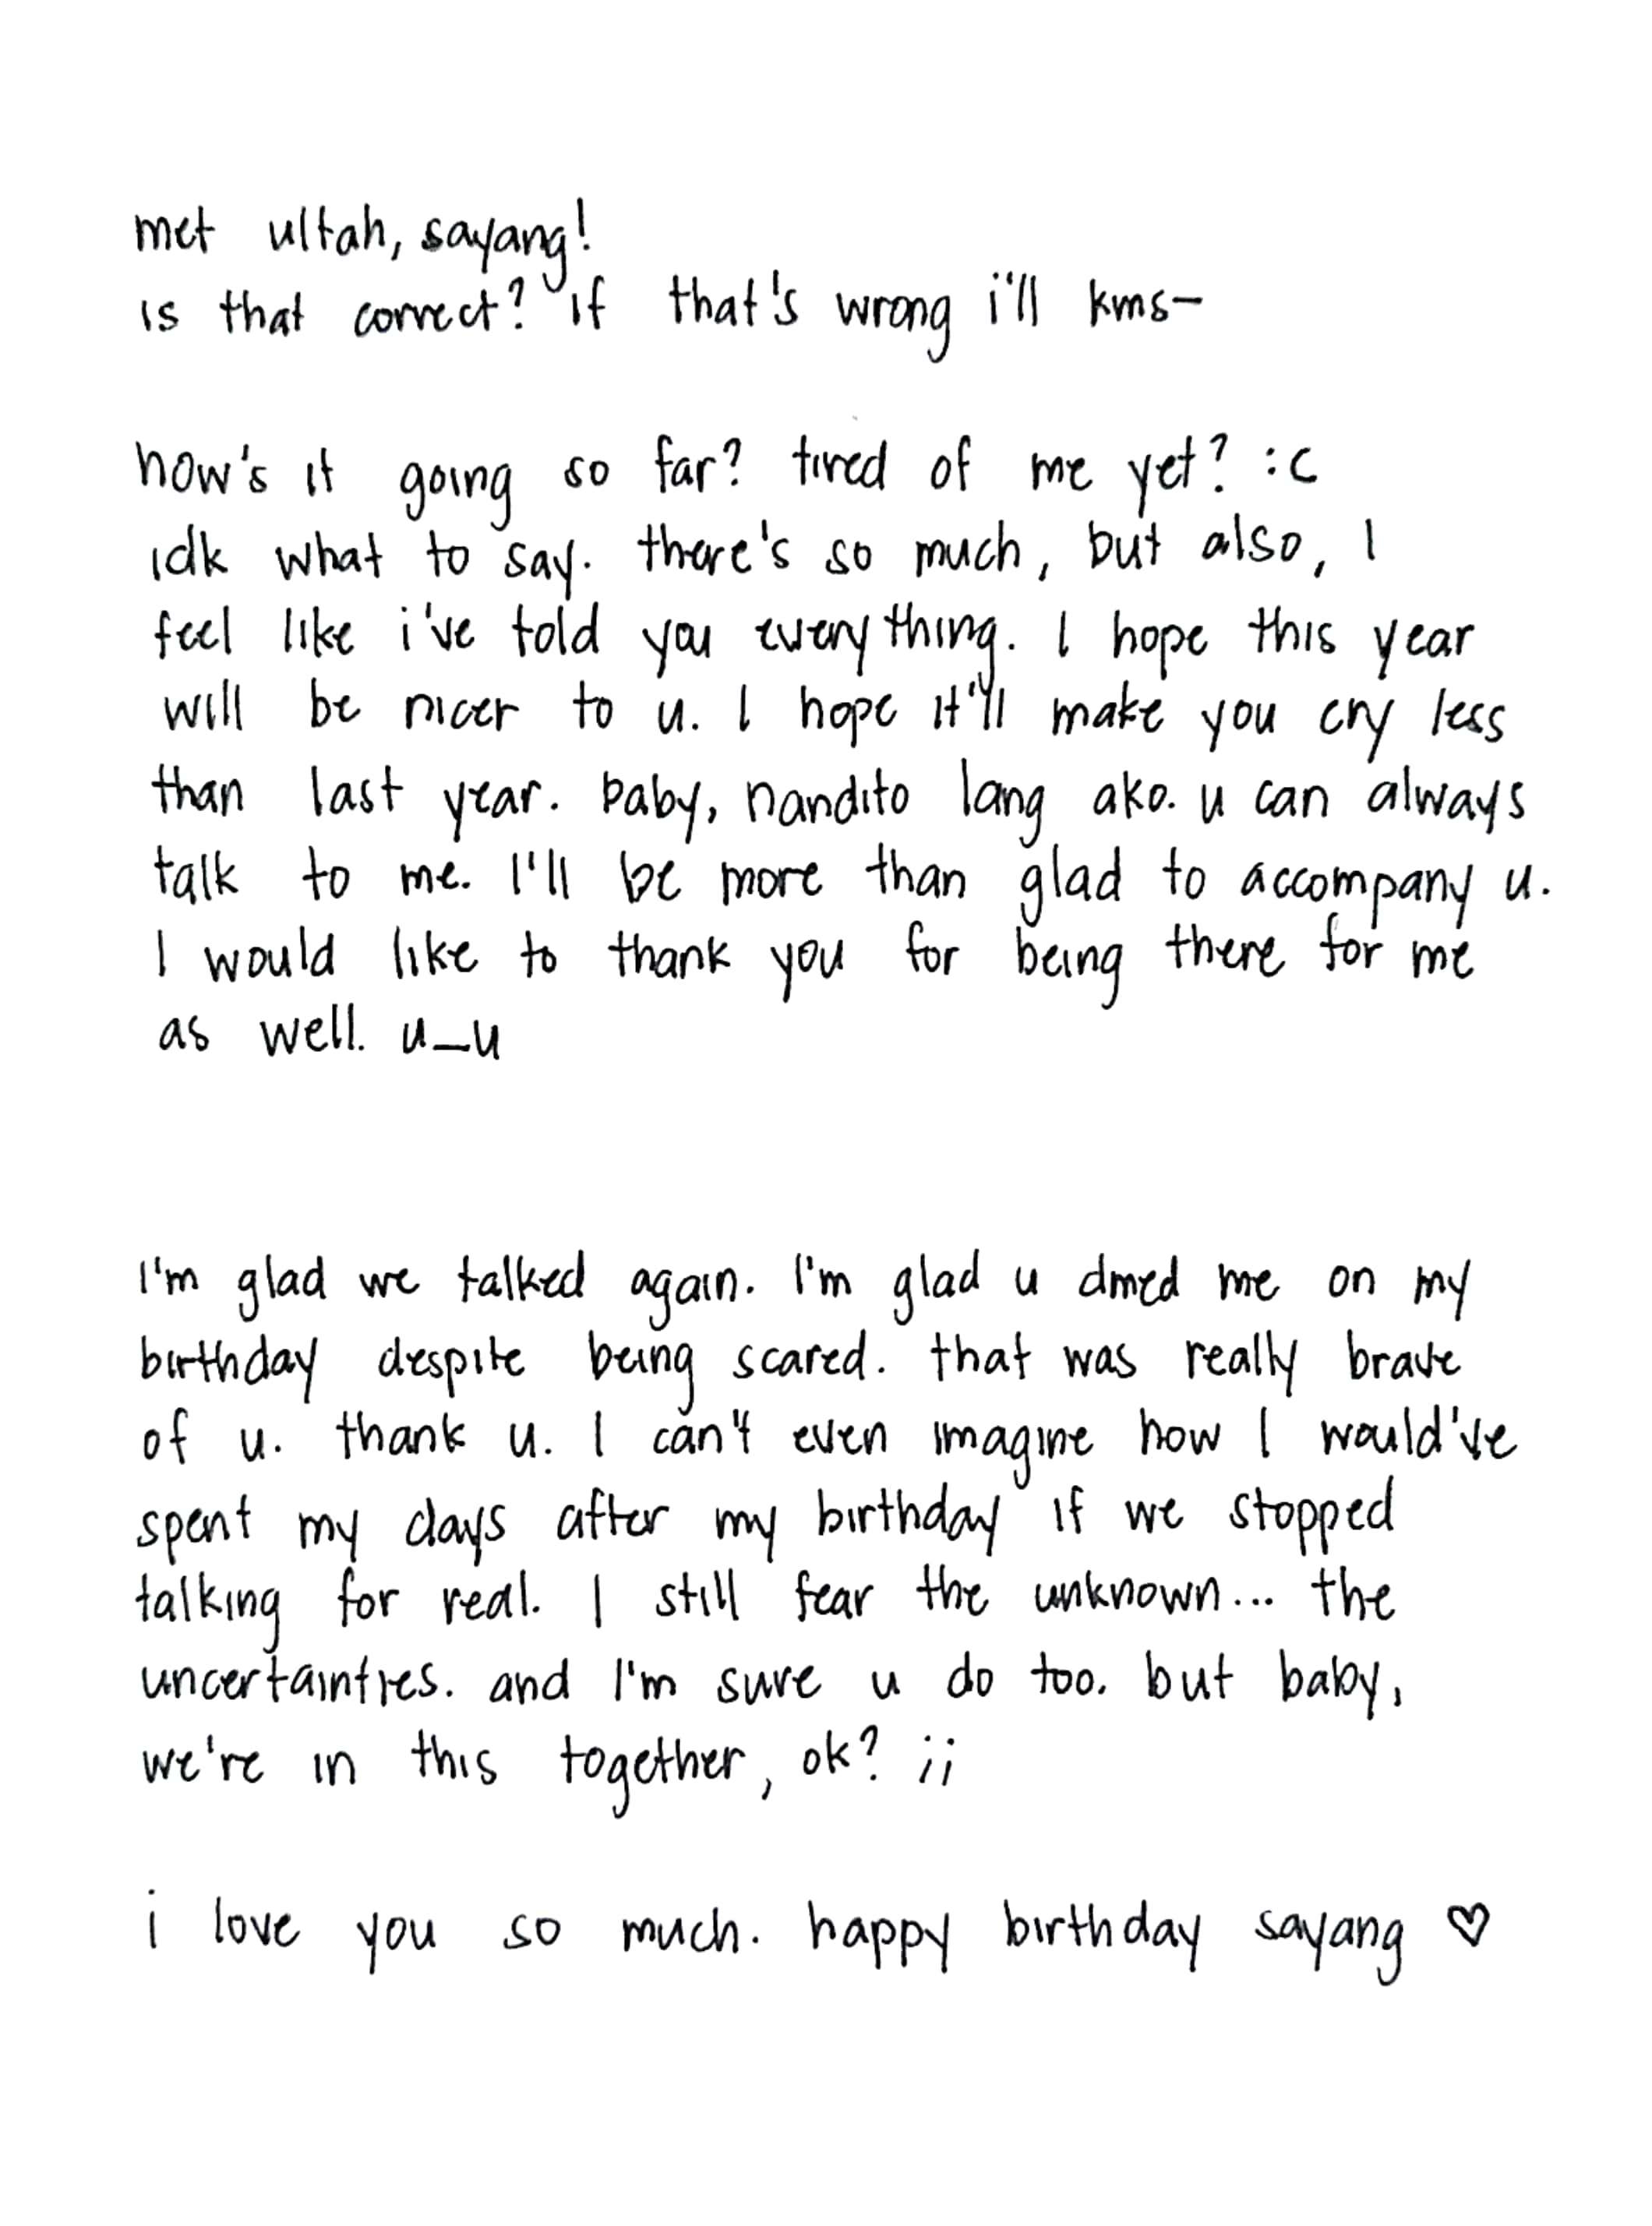 met ultah, sayang!
is that correct? if that's wrong i'll kms-
how's it going so far? tired of me yet? :c
idk what to say. there's so much, but also, I
feel like i've told you everything. I hope this year
will be nicer to u. I hope it'll make you cry less
than last year. baby, nandito lang ako. u can always
talk to me. I'll be more than glad to accompany u.
I would like to thank you for being there for me
as well. u_u
I'm glad we talked again. I'm glad u dmed me on my
birthday despite being scared. that was really brave
of u. thank u. I can't even imagine how I would've
spent my days after my birthday if we stopped
talking for real. I still fear the unknown... the
uncertainties. and I'm sure u do too. but baby,
we're in this together, ok? ;;
i love you so much. happy birthday sayang ♡